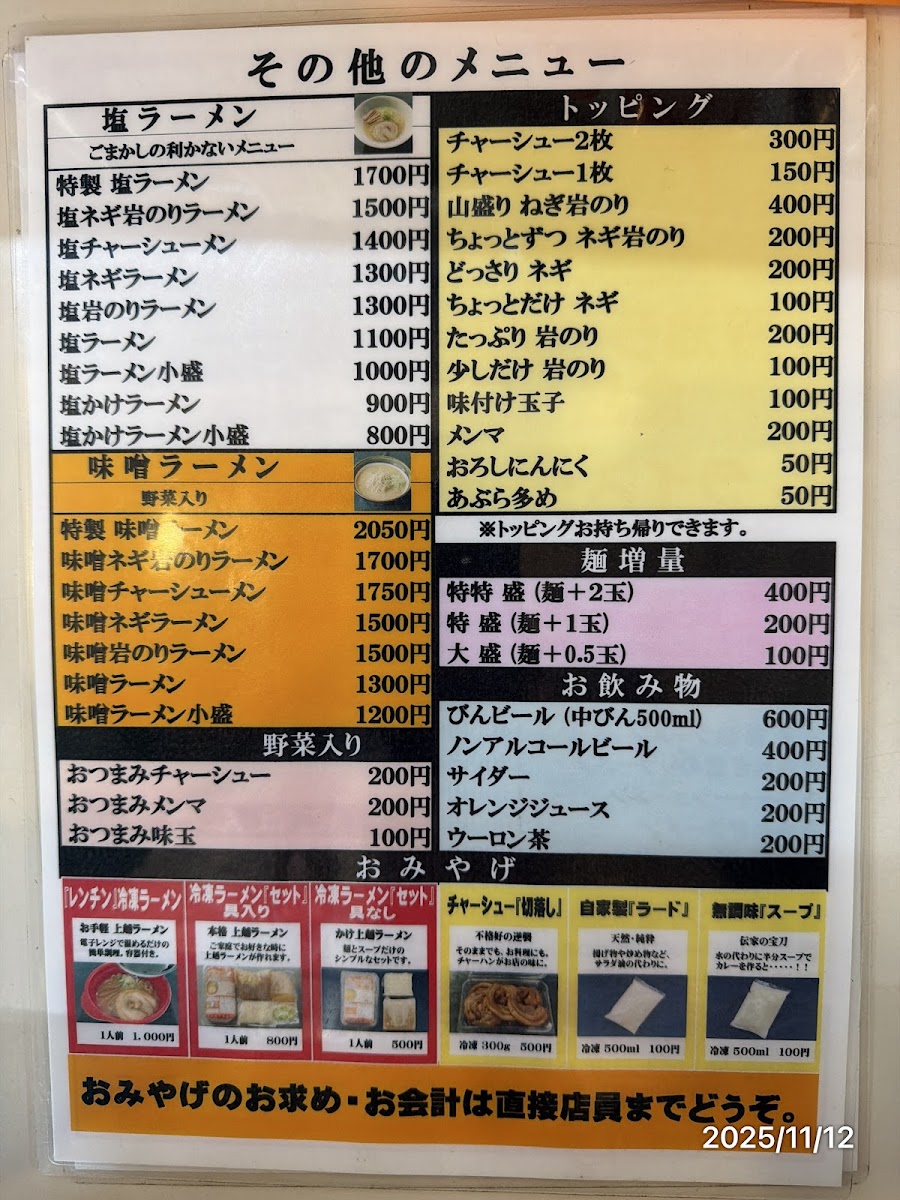 その他のメニュー
塩ラーメン
ごまかしの利かないメニュー
特製 塩ラーメン 1700円
塩ネギ岩のりラーメン 1500円
塩チャーシューメン 1400円
塩ネギラーメン 1300円
塩岩のりラーメン 1300円
塩ラーメン 1100円
塩ラーメン小盛 1000円
塩かけラーメン 900円
塩かけラーメン小盛 800円
味噌ラーメン
野菜入り
特製 味噌ラーメン 2050円
味噌ネギ岩のりラーメン 1700円
味噌チャーシューメン 1750円
味噌ネギラーメン 1500円
味噌岩のりラーメン 1500円
味噌ラーメン 1300円
味噌ラーメン小盛 1200円
野菜入り
おつまみチャーシュー 200円
おつまみメンマ 200円
おつまみ味玉 100円
トッピング
チャーシュー2枚 300円
チャーシュー1枚 150円
山盛り ねぎ岩のり 400円
ちょっとずつ ネギ岩のり 200円
どっさり ネギ 200円
ちょっとだけ ネギ 100円
たっぷり 岩のり 200円
少しだけ 岩のり 100円
味付け玉子 100円
メンマ 200円
おろしにんにく 50円
あぶら多め 50円
※トッピングお持ち帰りできます。
麺増量
特特 盛 (麺＋2玉) 400円
特 盛 (麺＋1玉) 200円
大 盛 (麺＋0.5玉) 100円
お飲み物
びんビール (中びん500ml) 600円
ノンアルコールビール 400円
サイダー 200円
オレンジジュース 200円
ウーロン茶 200円
おみやげ
『レンチン』冷凍ラーメン
お手軽 上麺ラーメン
電子レンジで温めるだけの
簡単調理。容器付き。
1人前 1,000円
冷凍ラーメン『セット』
具入り
本格 上麺ラーメン
ご家庭でお好きな時に
上麺ラーメンが作れます。
1人前 800円
冷凍ラーメン『セット』
具なし
かけ上麺ラーメン
麺とスープだけの
シンプルなセットです。
1人前 500円
チャーシュー『切落し』
不格好の逆襲
そのままでも、お料理にも、
チャーハンがお店の味に。
冷凍 300g 500円
自家製『ラード』
天然・純粋
揚げ物や炒め物など、
サラダ油の代わりに。
冷凍 500ml 100円
無調味『スープ』
伝家の宝刀
水の代わりに半分スープで
カレーを作ると……！！
冷凍 500ml 100円
おみやげのお求め・お会計は直接店員までどうぞ。
2025/11/12